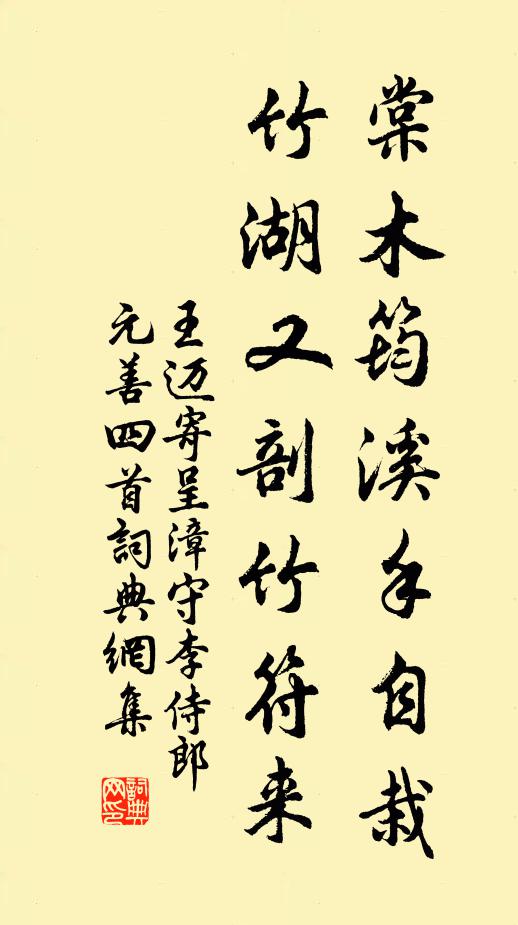 棠木筠溪手自栽
竹湖又剖竹符来
王迈寄呈漳守李侍郎
元善四首詞典網集
詞典网印